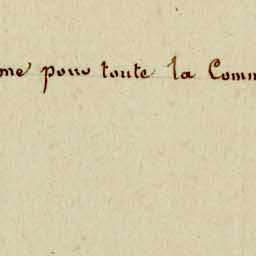 me pour toute la Comm